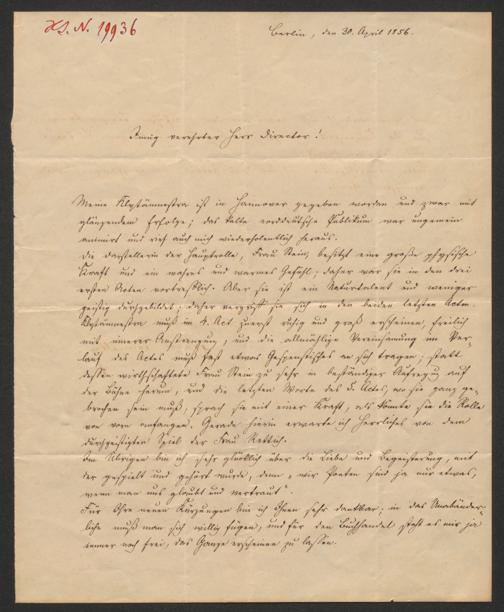 H.I.N. 19936
Berlin, den 30. April 1856.
Innig verehrter Herr Director!
Meine Klytämnestra ist in Hannover gegeben worden und zwar mit
glänzendem Erfolge; das kalte norddeutsche Publikum war ungemein
animirt und rief auch mich wiederholentlich heraus.
Die Darstellerin der Hauptrolle, Frau Stein, besitzt eine große physische
Kraft und ein wahres und warmes Gefühl; daher war sie in den drei
ersten Acten vortrefflich. Aber sie ist ein Naturtalent und weniger
geistig durchgebildet; daher vergriff sie sich in den beiden letzten Acten.
Klytämnestra muß im 4. Act zuerst ruhig und groß erscheinen, freilich
mit innerer Anstrengung, und die allmählige Vereinsamung im Ver-
lauf des Actes muß fast etwas Gespenstisches an sich tragen; statt
dessen wirthschaftete Frau Stein zu sehr in beständiger Aufregung auf
der Bühne herum, und die letzten Worte des 5. Actes, wo sie ganz ge-
brochen sein muß, sprach sie mit einer Kraft, als könnte sie die Rolle
von vorn anfangen. Gerade hierin erwarte ich Herrliches von dem
durchgeistigten Spiel der Frau Rettich.
Im Übrigen bin ich sehr glücklich über die Liebe und Begeisterung, mit
der gespielt und gehört wurde, denn „wir Poeten sind ja nur etwas,
wenn man uns glaubt und vertraut“.
Für Ihre neuen Kürzungen bin ich Ihnen sehr dankbar; in das Unabänder-
liche muß man sich willig fügen, und für den Buchhandel steht es mir ja
immer noch frei, das Ganze erscheinen zu lassen.